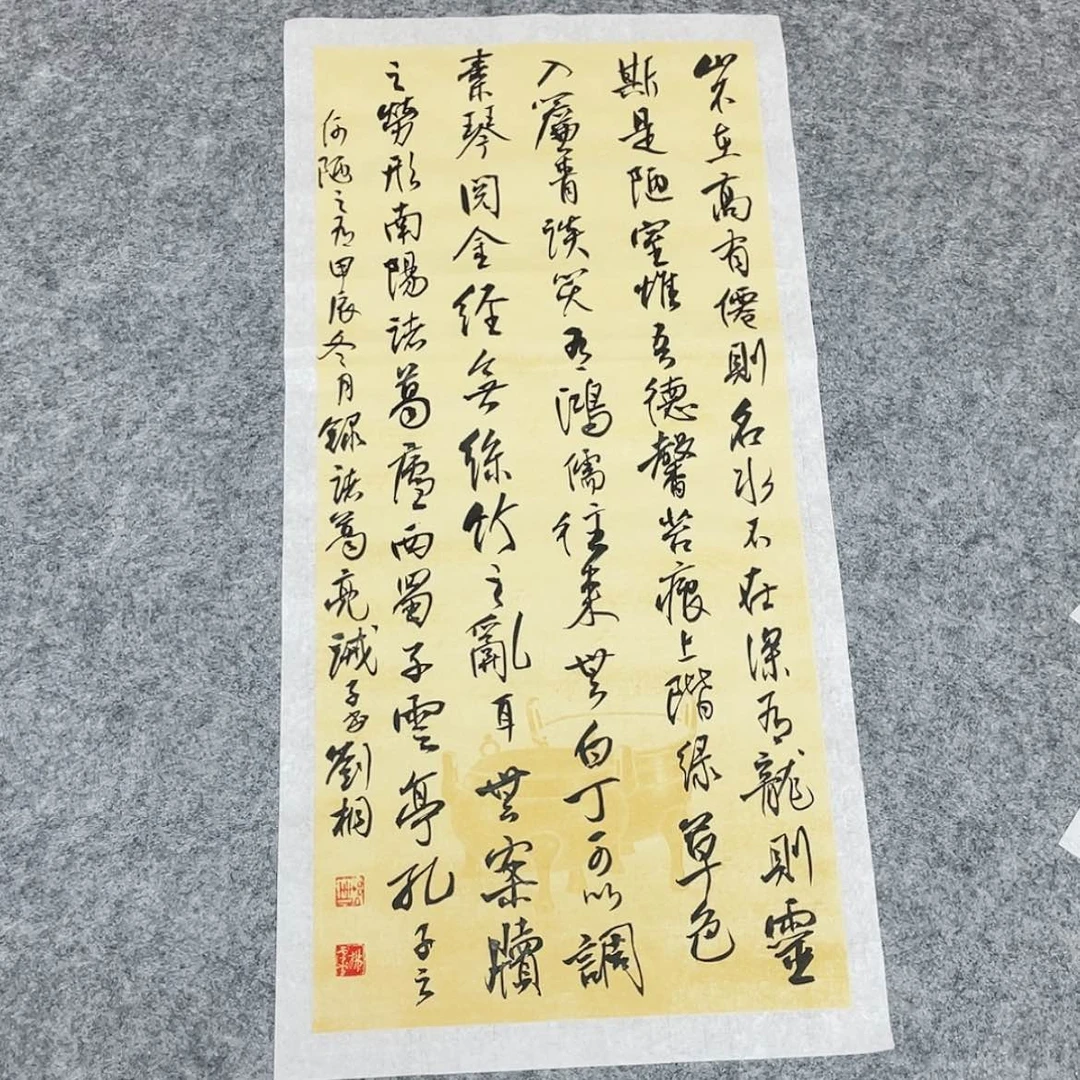 山不在高有僊則名水不在深有龍則靈
斯是陋室惟吾德馨苔痕上階緑草色
入簾青談笑有鴻儒往來無白丁可以調
素琴閲金經無絲竹之亂耳無案牘
之勞形南陽諸葛廬西蜀子雲亭孔子云
何陋之有甲辰冬月録諸葛亮誡子書劉桐